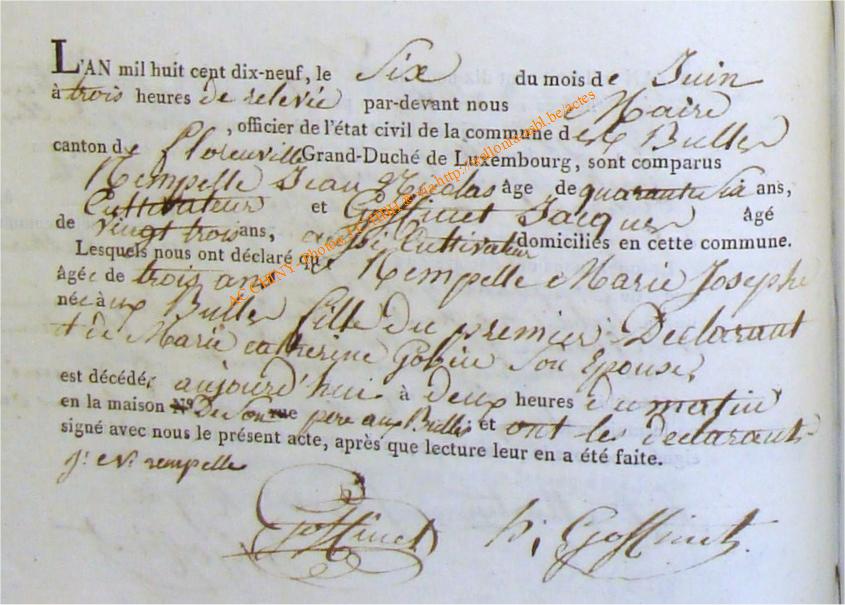 L'AN mil huit cent dix-neuf, le Six du mois de Juin
à trois heures de relevée par-devant nous Maire
, officier de l'état civil de la commune des Bulles
canton de florenville Grand-Duché de Luxembourg, sont comparus
Rempelle Jean Nicolas âgé de quarante Six ans,
Cultivateur et Goffinet Jacques âgé
de vingt trois ans, aussi Cultivateur domiciliés en cette commune.
Lesquels nous ont déclaré que Rempelle Marie Josephe
âgée de trois ans
née aux Bulles fille du premier Declarant
et de Marie catherine Gobin Son Epouse,
est décédée aujourd'hui à deux heures du matin
en la maison N.º De Son rue pere aux Bulles; et ont les declarants
signé avec nous le présent acte, après que lecture leur en a été faite.
j. N. rempelle
Goffinet h, Goffinet
AC CHINY photos http://wallonica asbl.be/actes